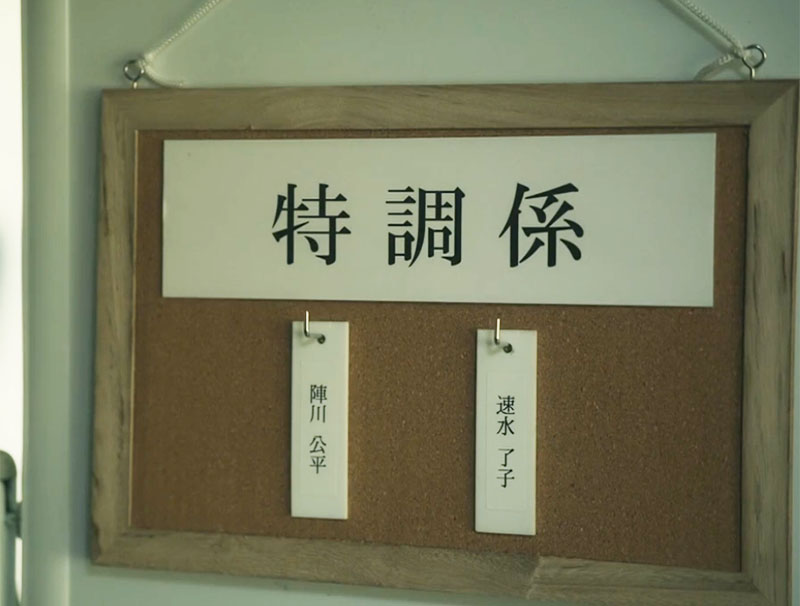 特調係
陣川 公平
速水 了子